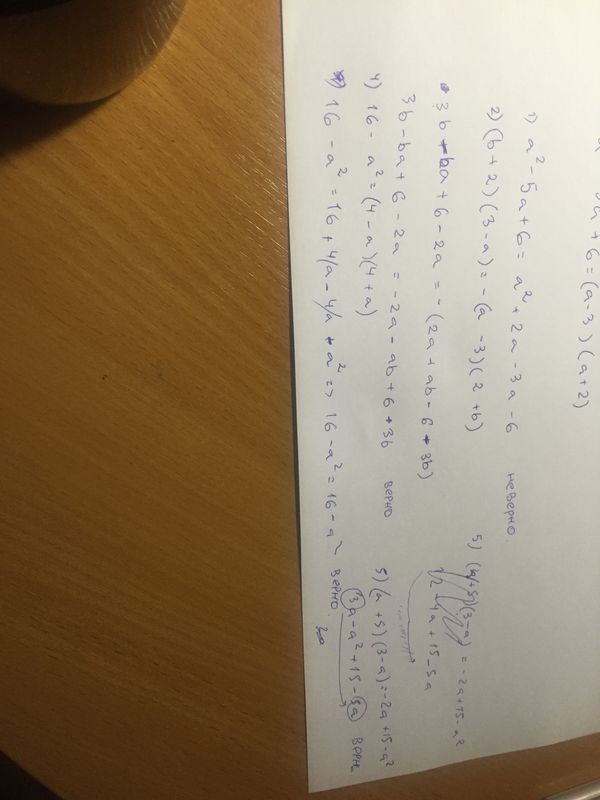 a + 6 = (a-3)(a+2)
1) a² - 5a + 6 = a² + 2a - 3a - 6 неверно.
2) (b+2)(3-a) = -(a-3)(2+b)
3b - ba + 6 - 2a = -(2a + ab - 6 - 3b)
3b - ba + 6 - 2a = -2a - ab + 6 + 3b верно
4) 16 - a² = (4-a)(4+a)
16 - a² = 16 + 4a - 4a - a² => 16 - a² = 16 - a² верно.
5) (a+5)(3-a) = -2a + 15 - a²
4a + 15 - 5a
5) (a+5)(3-a) = -2a + 15 - a²
3a - a² + 15 - 5a верн